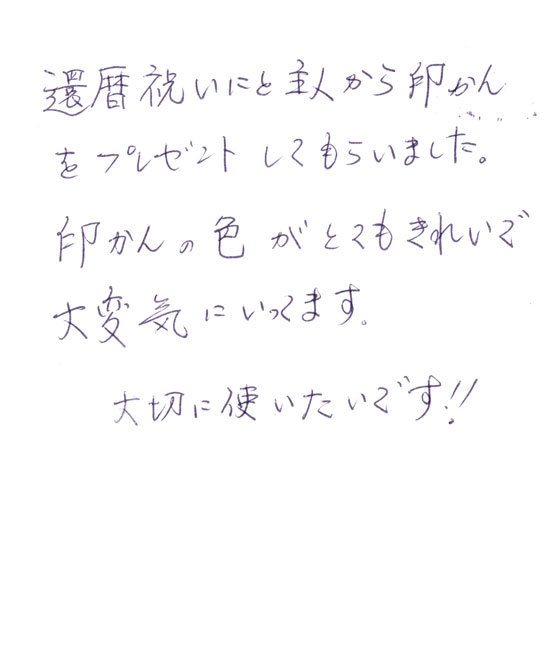 還暦祝いにと主人から印かん
をプレゼントしてもらいました。
印かんの色がとてもきれいで
大変気にいってます。
大切に使いたいです!!